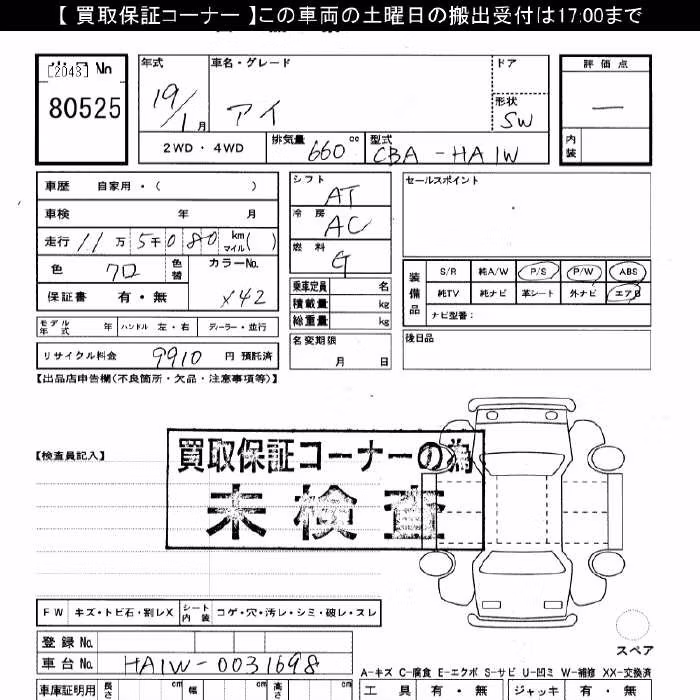 【 買取保証コーナー 】この車両の土曜日の搬出受付は17:00まで
[2043] No
80525
年式 車名・グレード ドア 評価点
19/1月 アイ 形状 SW —
2WD・4WD 排気量 660 cc 型式 CBA-HA1W 内装
車歴 自家用・( )
車検 年 月
走行 11万5千080 km マイル( )
色 クロ 色替 カラーNo. X42
保証書 有・無
モデル年式 年 ハンドル 左・右 ディーラー・並行
リサイクル料金 9910 円 預託済
シフト AT
冷房 AC
燃料 G
乗車定員 名
積載量 kg
総重量 kg
名変期限
月 日
セールスポイント
装備品 S/R 純A/W P/S P/W ABS
純TV 純ナビ 革シート 外ナビ エアB
ナビ型番:
後日品
【出品店申告欄(不良箇所・欠品・注意事項等)】
【検査員記入】
買取保証コーナーの為
未検査
FW キズ・トビ石・割レX シート内装 コゲ・穴・汚レ・シミ・破レ・スレ
スペア
登録No.
車台No. HA1W-0031698
A-キズ C-腐食 E-エクボ S-サビ U-凹ミ W-補修 XX-交換済
車庫証明用 長さ cm 幅 cm 高さ cm
工具 有・無 ジャッキ 有・無